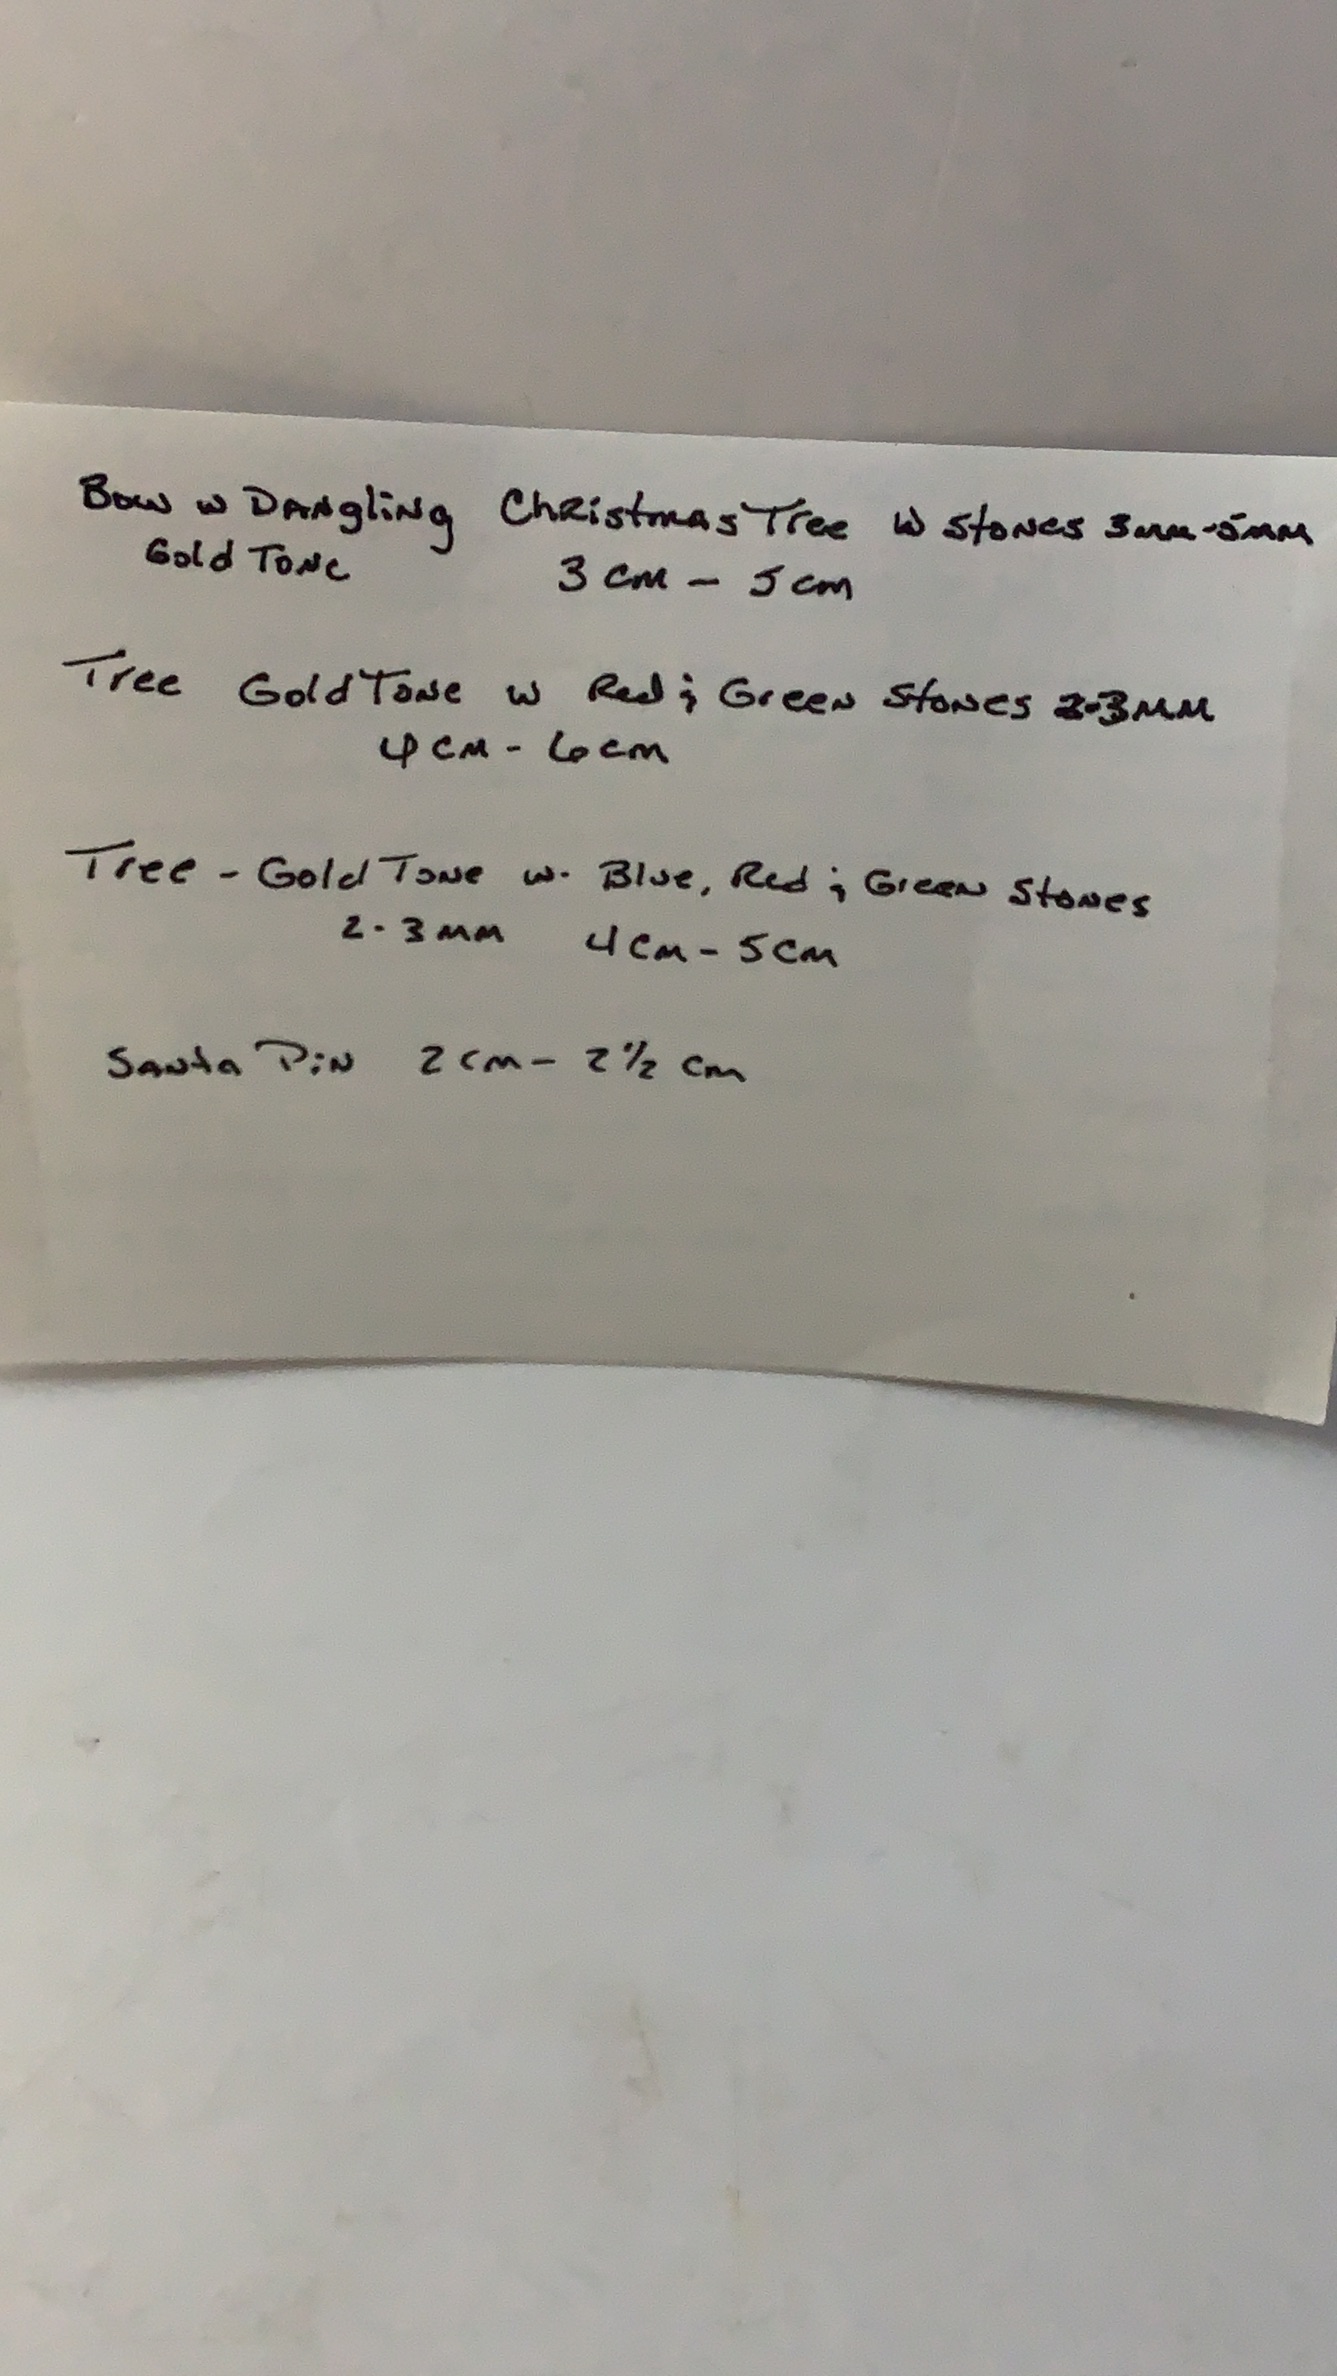 Bow w Dangling Christmas Tree w stones 3mm-5mm
Gold Tone 3 cm - 5 cm
Tree Gold Tone w Red & Green Stones 2-3mm
4 cm - 6 cm
Tree - Gold Tone w. Blue, Red & Green Stones
2-3 mm 4 cm - 5 cm
Santa Pin 2 cm - 2 1/2 cm